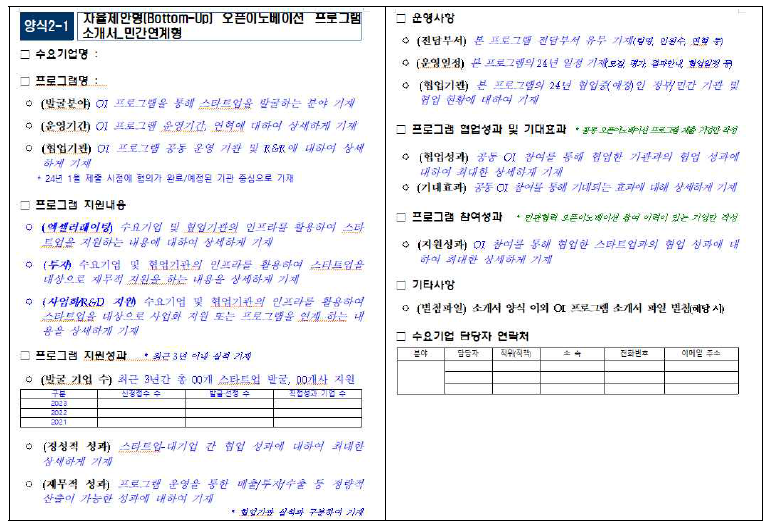 양식2-1
자율제안형(Bottom-Up) 오픈이노베이션 프로그램
소개서_민간연계형
□ 수요기업명 :
□ 프로그램명 :
○ (발굴분야) OI 프로그램을 통해 스타트업을 발굴하는 분야 기재
○ (운영기간) OI 프로그램 운영기간, 연혁에 대하여 상세하게 기재
○ (협업기관) OI 프로그램 공동 운영 기관 및 R&R에 대하여 상세
하게 기재
* 24년 1월 제출 시점에 협의가 완료/예정된 기관 중심으로 기재
□ 프로그램 지원내용
○ (액셀러레이팅) 수요기업 및 협업기관의 인프라를 활용하여 스타
트업을 지원하는 내용에 대하여 상세하게 기재
○ (투자) 수요기업 및 협업기관의 인프라를 활용하여 스타트업을
대상으로 재무적 지원을 하는 내용을 상세하게 기재
○ (사업화/R&D 지원) 수요기업 및 협업기관의 인프라를 활용하여
스타트업을 대상으로 사업화 지원 또는 프로그램을 연계 하는 내
용을 상세하게 기재
□ 프로그램 지원성과 * 최근 3년 이내 실적 기재
○ (발굴 기업 수) 최근 3년간 총 00개 스타트업 발굴, 00개사 지원
구분 신청접수 수 발굴·선정 수 직접성과 기업 수
2023
2022
2021
○ (정성적 성과) 스타트업-대기업 간 협업 성과에 대하여 최대한
상세하게 기재
○ (재무적 성과) 프로그램 운영을 통한 매출/투자/수출 등 정량적
산출이 가능한 성과에 대하여 기재
* 협업기관 실적과 구분하여 기재
□ 운영사양
○ (전담부서) 본 프로그램 전담부서 유무 기재(팀명, 인원수, 연혁 등)
○ (운영일정) 본 프로그램의 24년 일정 기재(모집, 평가, 결과안내, 협업일정 등)
○ (협업기관) 본 프로그램의 24년 협업중(예정)인 정부/민간 기관 및
협업 현황에 대하여 기재
□ 프로그램 협업성과 및 기대효과 * 공동 오픈이노베이션 프로그램 제출 기업만 작성
○ (협업성과) 공동 OI 참여를 통해 협업한 기관과의 협업 성과에
대하여 최대한 상세하게 기재
○ (기대효과) 공동 OI 참여를 통해 기대되는 효과에 대해 상세하게 기재
□ 프로그램 참여성과 * 민관협력 오픈이노베이션 참여 이력이 있는 기업만 작성
○ (지원성과) OI 참여를 통해 협업한 스타트업과의 협업 성과에 대
하여 최대한 상세하게 기재
□ 기타사양
○ (별첨파일) 소개서 양식 이외 OI 프로그램 소개서 파일 별첨(해당 시)
□ 수요기업 담당자 연락처
분야 담당자 직위(직책) 소 속 전화번호 이메일 주소